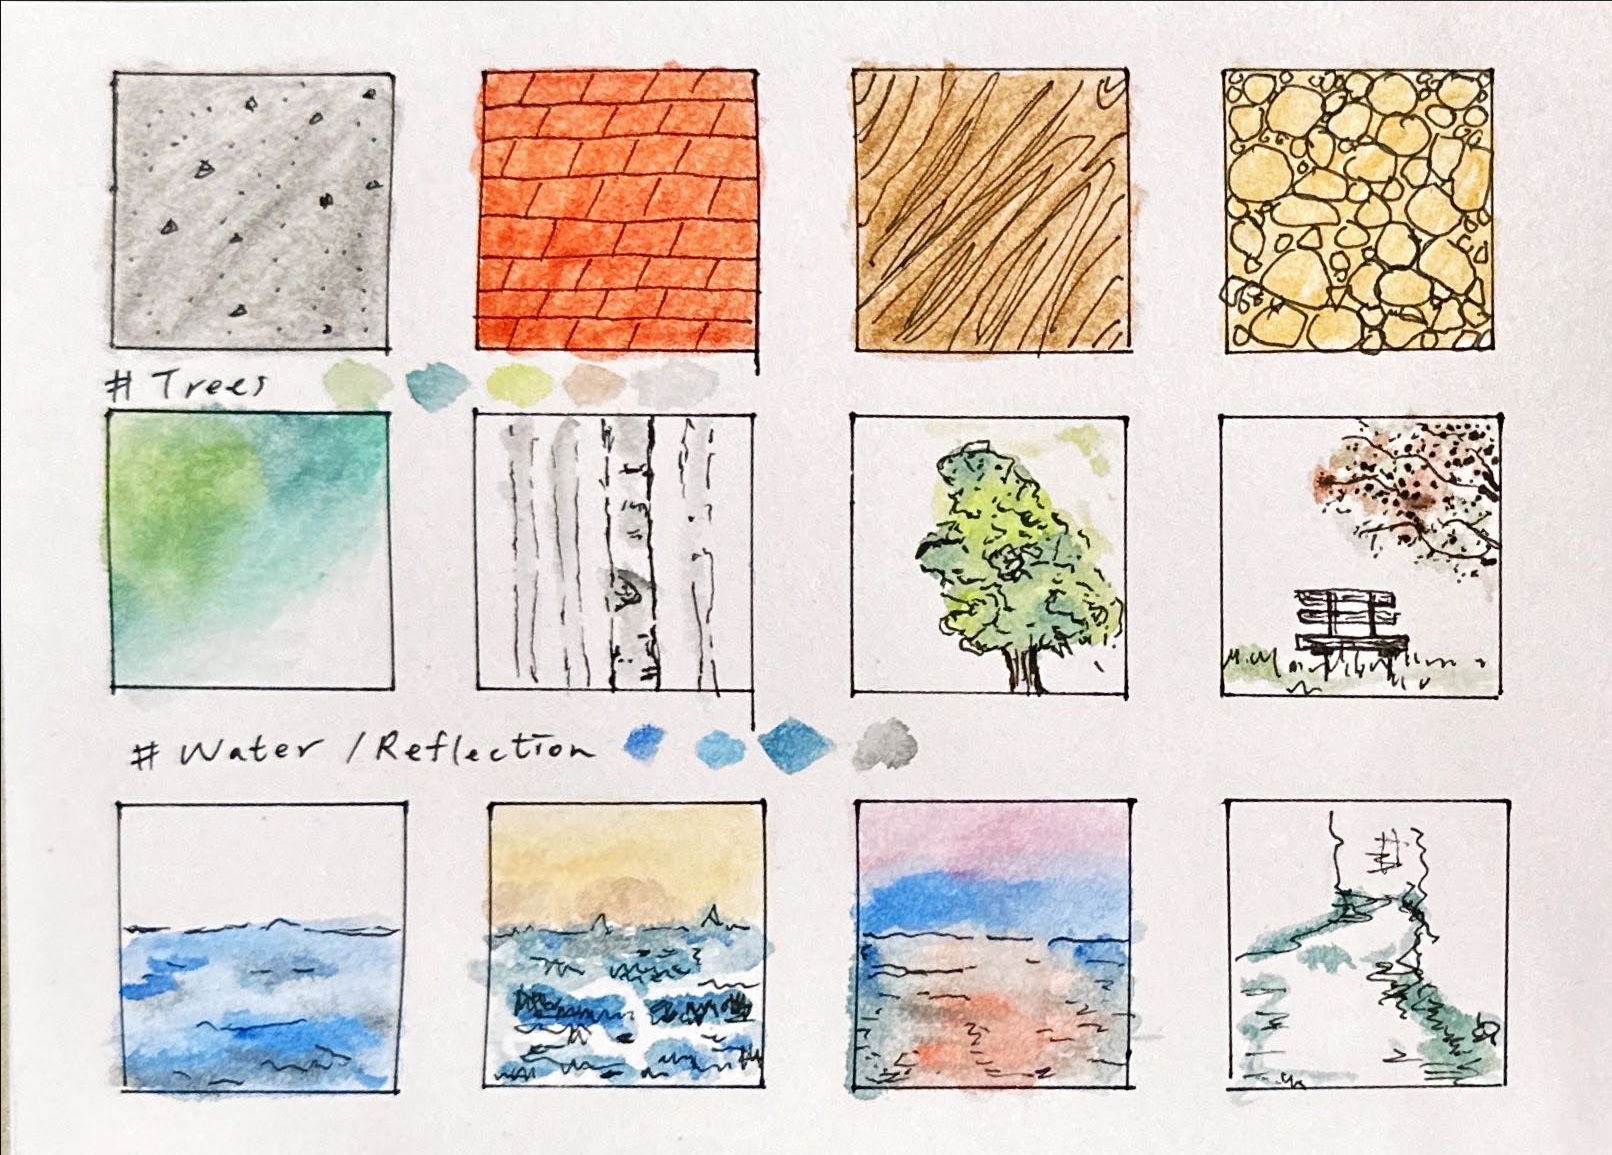 # Trees
# Water / Reflection